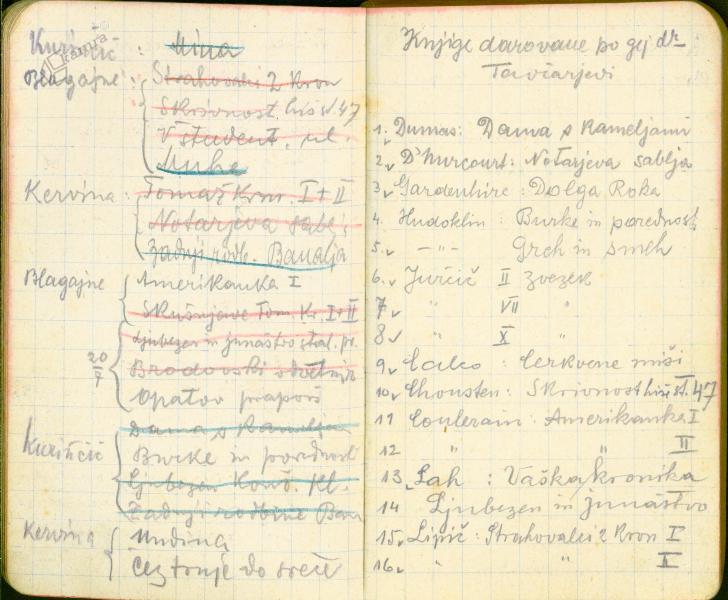 : Mina
Blagajne : Strahovalci 2 Kron
Skrivnost hiš št. 47
V študent. ul.
Muhe
Kervina : Tomaž Krm. I + II
Notarjeva sablj
Zadnji rodb. Banalja
Blagajne Amerikanka I
Skušnjave Tom. Kr. I+II
Ljubezen in junaštvo
20/7 Brodovski
Opatov prapor
Dama s Kamelja
Burke in porednost
Ljubezen Konš. Kl.
Zadnji rodbine Ban
Kervina Undina
Čez trnje do sreče
Knjige darovane po gej dr
Tavčarjevi
1. Dumas: Dama s Kameljami
2. D'Hurcourt: Notarjeva sablja
3. Gardenhire : Dolga Roka
4. Hudoklin : Burke in porednost
5. " Greh in smeh
6. Jurčič II zvezek
7 " VII "
8 " X "
9 Calco : Cerkvene miši
10. Chousten : Skrivnost hiše št. 47
11 Coulerain : Amerikanka I
12 " " II
13. Lah : Vaška kronika
14 Ljubezen in junaštvo
15. Lipič : Strahovalci 2 Kron I
16. " " II